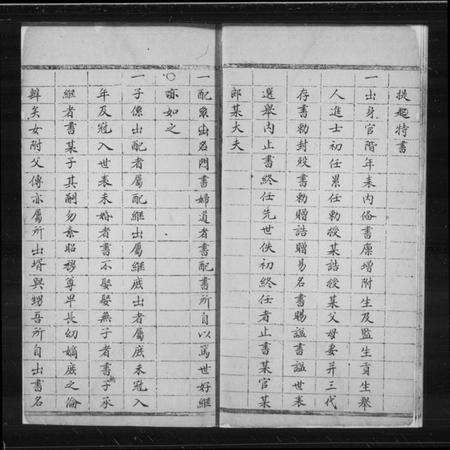 提起特書
一出身官階年表內俗書廩增附生及監生貢生舉
人進士初任累任勅授某誥授某父母妻并三代
存書勅封歿書勅贈誥贈易名書賜謚書謚世表
選舉內止書終任先世佚初終任者止書某官某
郎某大夫
一配象出名門書婦道者書配書所自以篤世好繼
亦如之
一子係出配者屬配繼出屬繼庶出者屬庶未冠入
年反冠入世表未婚者書不娶娶無子者書無子承
繼者書某子其嗣勿紊昭穆尊卑長幼嫡庶之倫
辨矣女附父傳亦屬所出壻與甥吾所自出書名